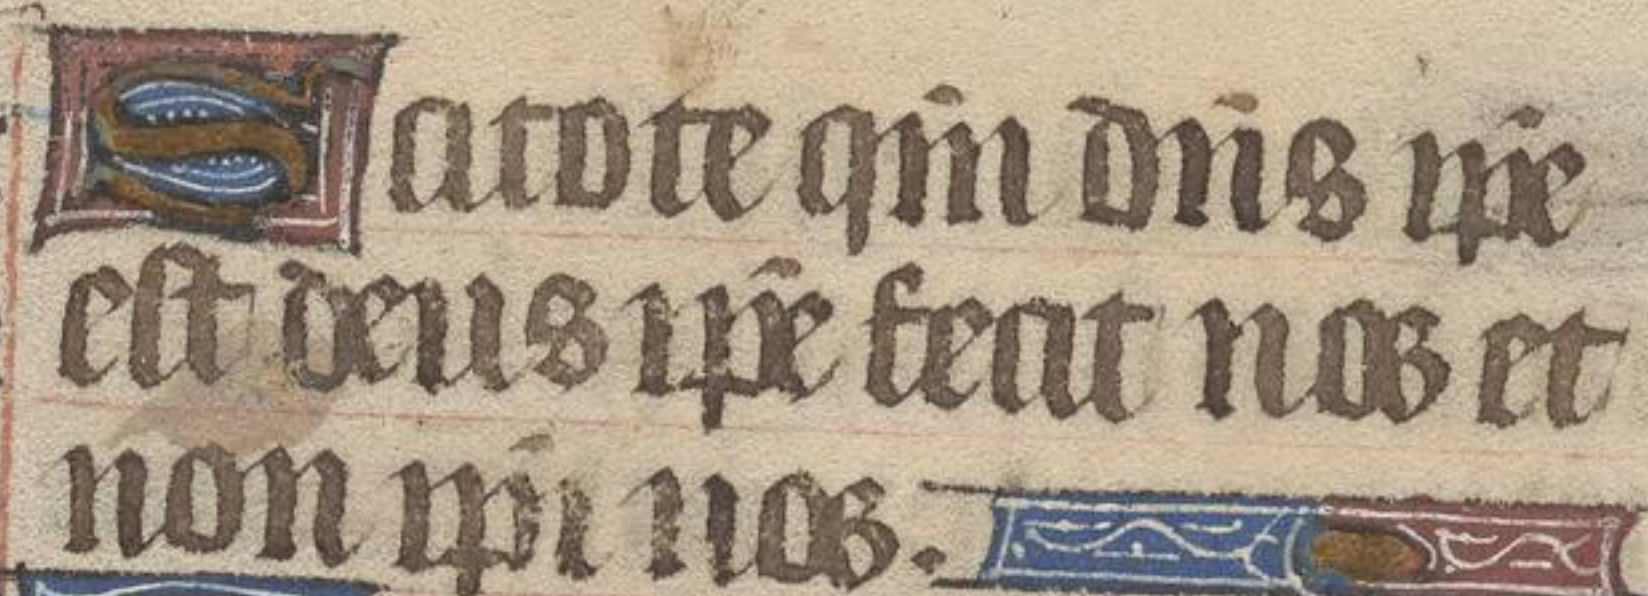 Scitote qm̄ dn̄s ip̄e
est deus ip̄e fecit nos et
non ip̄i nos.